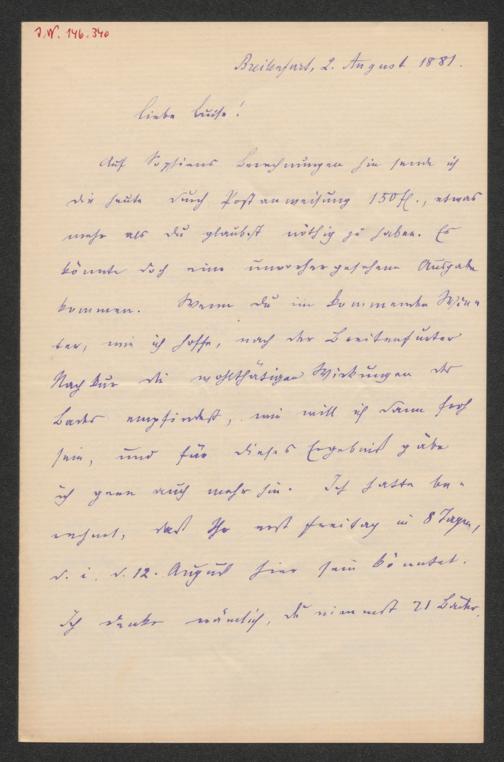 J.N. 146.340
Breitenfurt, 2. August 1881.
Liebe Luise!
Auf Sophiens Berechnungen hin sende ich
dir heute durch Postanweisung 150 fl., etwas
mehr als du glaubst nöthig zu haben. Es
könnte doch eine unvorhergesehene Ausgabe
kommen. Wenn du im kommenden Win-
ter, wie ich hoffe, nach der Breitenfurter
Nachkur die wohlthätigen Wirkungen des
Bades empfindest, wie will ich dann froh
sein, und für dieses Ergebniß gäbe
ich gern auch mehr hin. Ich hatte be-
rechnet, daß Ihr erst Freitag in 8 Tagen,
d. i. d. 12. August hier sein könntet.
Ich denke nämlich, du nimmst 21 Bäder,